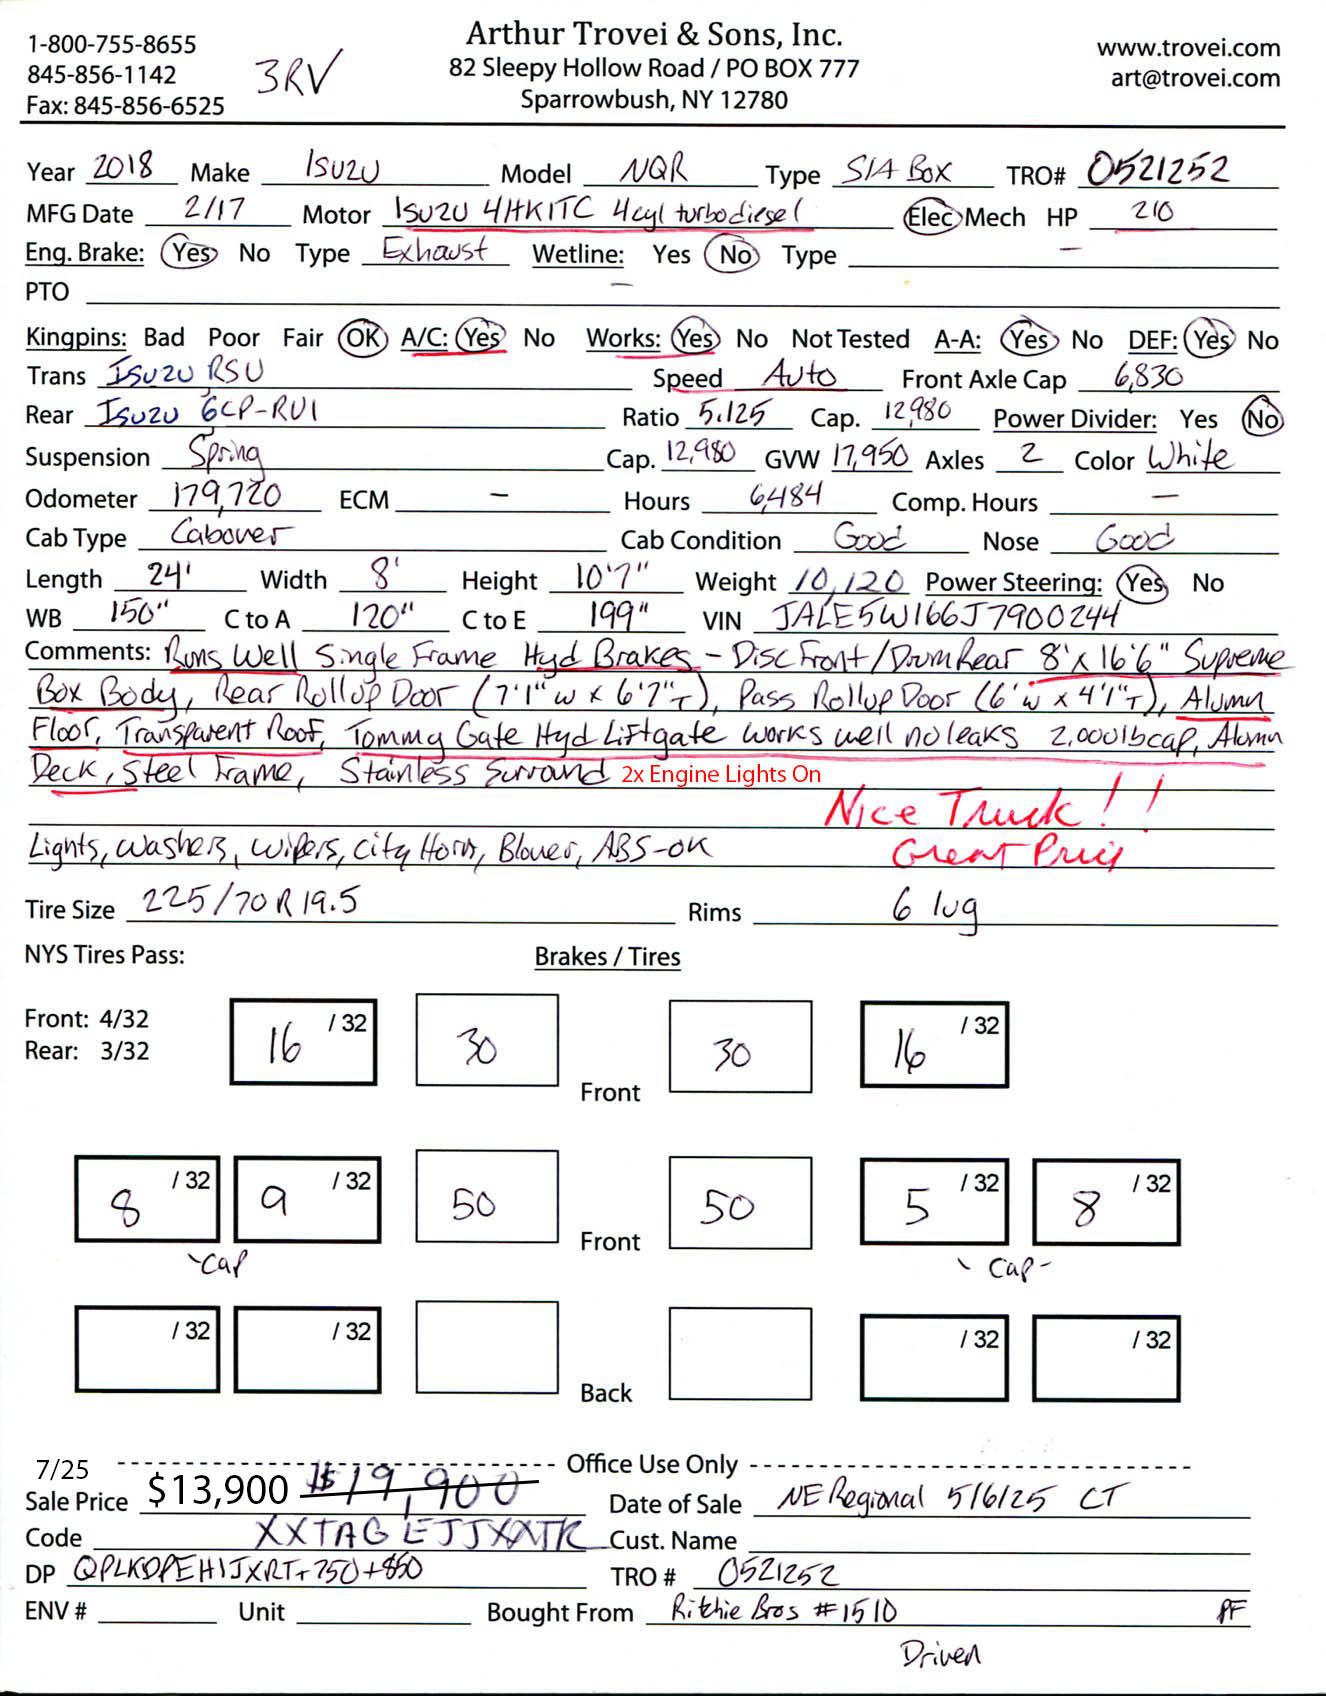 Arthur Trovei & Sons, Inc.
1-800-755-8655
845-856-1142
Fax: 845-856-6525
3RV
82 Sleepy Hollow Road / PO BOX 777
Sparrowbush, NY 12780
www.trovei.com
art@trovei.com
Year 2018 Make ISUZU Model NQR Type S/A Box TRO# 0521252
MFG Date 2/17 Motor ISUZU 4HK1TC 4cyl turbodiesel Elec Mech HP 210
Eng. Brake: Yes No Type Exhaust Wetline: Yes No Type —
PTO —
Kingpins: Bad Poor Fair OK A/C: Yes No Works: Yes No Not Tested A-A: Yes No DEF: Yes No
Trans ISUZU RSU Speed Auto Front Axle Cap 6,830
Rear ISUZU GCP-RU1 Ratio 5.125 Cap. 12,980 Power Divider: Yes No
Suspension Spring Cap. 12,980 GVW 17,950 Axles 2 Color White
Odometer 179,720 ECM — Hours 6,484 Comp. Hours —
Cab Type Cabover Cab Condition Good Nose Good
Length 24' Width 8' Height 10'7" Weight 10,120 Power Steering: Yes No
WB 150" C to A 120" C to E 199" VIN JALE5W166J7900244
Comments: Runs Well Single Frame Hyd Brakes - Disc Front / Drum Rear 8' x 16'6" Supreme
Box Body, Rear Rollup Door (7'1"w x 6'7"T), Pass Rollup Door (6'w x 4'1"T), Alumn
Floor, Transparent Roof, Tommy Gate Hyd Liftgate works well no leaks 2,000lb cap, Alumn
Deck, Steel Frame, Stainless Surround 2x Engine Lights On
Nice Truck!!
Lights, washers, wipers, City Horn, Blower, ABS-OK
Great Price
Tire Size 225/70R19.5 Rims 6 lug
NYS Tires Pass: Brakes / Tires
Front: 4/32
Rear: 3/32
16 /32 30 Front 30 16 /32
8 /32 9 /32 50 Front 50 5 /32 8 /32
-Cap - Cap-
/32 /32 Back /32 /32
7/25 Office Use Only
Sale Price $13,900 $19,900 Date of Sale NE Regional 5/6/25 CT
Code XXTAGEJJXXTK Cust. Name
DP QPLKDPEHIJXRT+750+850 TRO # 0521252
ENV # Unit Bought From Ritchie Bros #1510 PF
Driven